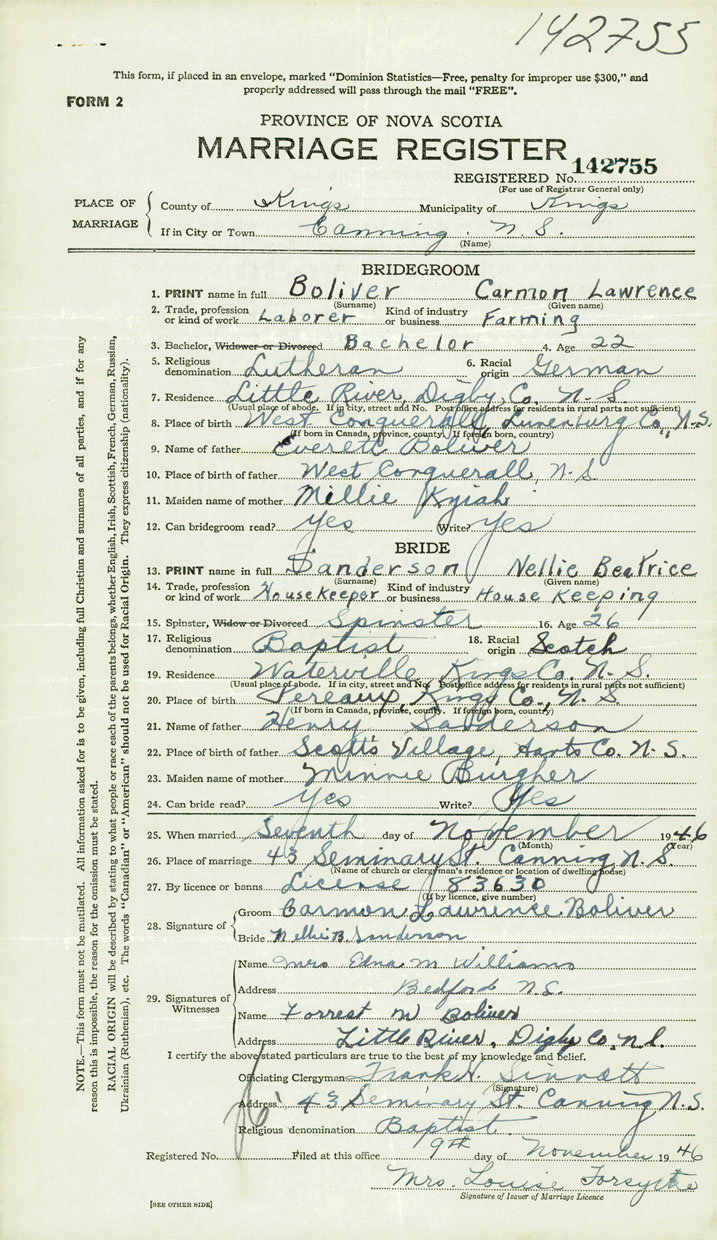 142755
This form, if placed in an envelope, marked "Dominion Statistics—Free, penalty for improper use $300," and
properly addressed will pass through the mail "FREE".
FORM 2
PROVINCE OF NOVA SCOTIA
MARRIAGE REGISTER
REGISTERED No. 142755
(For use of Registrar General only)
PLACE OF MARRIAGE
County of Kings Municipality of Kings
If in City or Town Canning. N. S.
(Name)
BRIDEGROOM
1. PRINT name in full Boliver Carmon Lawrence
(Surname) (Given name)
2. Trade, profession or kind of work Laborer Kind of industry or business Farming
3. Bachelor, Widower or Divorced Bachelor 4. Age 22
5. Religious denomination Lutheran 6. Racial origin German
7. Residence Little River, Digby, Co. N-S.
(Usual place of abode. If in city, street and No. Post office address for residents in rural parts not sufficient)
8. Place of birth West Conquerall, Lunenburg Co., N-S.
(If born in Canada, province, county. If foreign born, country)
9. Name of father Everett Boliver
10. Place of birth of father West Conquerall, N-S
11. Maiden name of mother Millie
12. Can bridegroom read? Yes Write? Yes
BRIDE
13. PRINT name in full Sanderson Nellie Beatrice
(Surname) (Given name)
14. Trade, profession or kind of work Housekeeper Kind of industry or business House Keeping
15. Spinster, Widow or Divorced Spinster 16. Age 26
17. Religious denomination Baptist 18. Racial origin Scotch
19. Residence Waterville, Kings Co. N. S.
(Usual place of abode. If in city, street and No. Post office address for residents in rural parts not sufficient)
20. Place of birth Pereaux, Kings Co., N. S.
(If born in Canada, province, county. If foreign born, country)
21. Name of father Henry Sanderson
22. Place of birth of father Scott's Village, Hants Co. N-S.
23. Maiden name of mother Minnie Burgher
24. Can bride read? Yes Write? Yes
25. When married Seventh day of November 1946
(Month) (Year)
26. Place of marriage 43 Seminary St. Canning N. S.
(Name of church or clergyman's residence or location of dwelling house)
27. By licence or banns License 83630
(If by licence, give number)
28. Signature of
Groom Carmon Lawrence Boliver
Bride Nellie B. Sanderson
29. Signatures of Witnesses
Name Mrs Edna M Williams
Address Bedford N.S.
Name Forrest M Boliver
Address Little River, Digby Co, N.S.
I certify the above stated particulars are true to the best of my knowledge and belief.
Officiating Clergyman Frank H. Sinnott
(Signature)
Address 43 Seminary St. Canning N. S.
Religious denomination Baptist
Registered No. Filed at this office 9th day of November 1946
Mrs. Louise Forsythe
Signature of Issuer of Marriage Licence
[SEE OTHER SIDE]
NOTE.—This form must not be mutilated. All information asked for is to be given, including full Christian and surnames of all parties, and if for any
reason this is impossible, the reason for the omission must be stated.
RACIAL ORIGIN will be described by stating to what people or race each of the parents belongs, whether English, Irish, Scottish, French, German, Russian,
Ukrainian (Ruthenian), etc. The words "Canadian" or "American" should not be used for Racial Origin. They express citizenship (nationality).